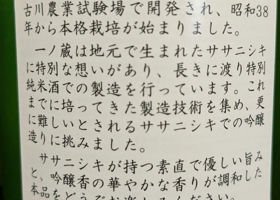 古川農業試験場で開発され、昭和38
年から本格栽培が始まりました。
一ノ蔵は地元で生まれたササニシキ
に特別な想いがあり、長きに渡り特別
純米酒での製造を行っています。これ
までに培ってきた製造技術を集め、更
に難しいとされるササニシキでの吟醸
造りに挑みました。
ササニシキが持つ素直で優しい旨み
と、吟醸香の華やかな香りが調和した
本品をどうぞお楽しみください。